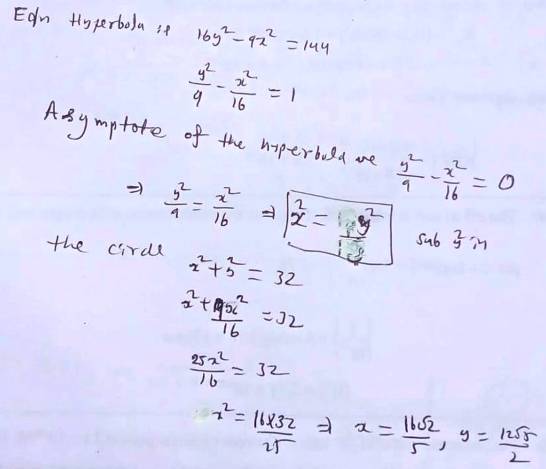 Eqn Hyperbola is 16y² - 9x² = 144
y²/9 - x²/16 = 1
Asymptote of the hyperbula are y²/9 - x²/16 = 0
⇒ y²/9 = x²/16 ⇒ x² = y² sub y² in
the circle
x² + y² = 32
x² + 9x²/16 = 32
25x²/16 = 32
x² = 16×32/25 ⇒ x = 16√2/5, y = 12√5/2